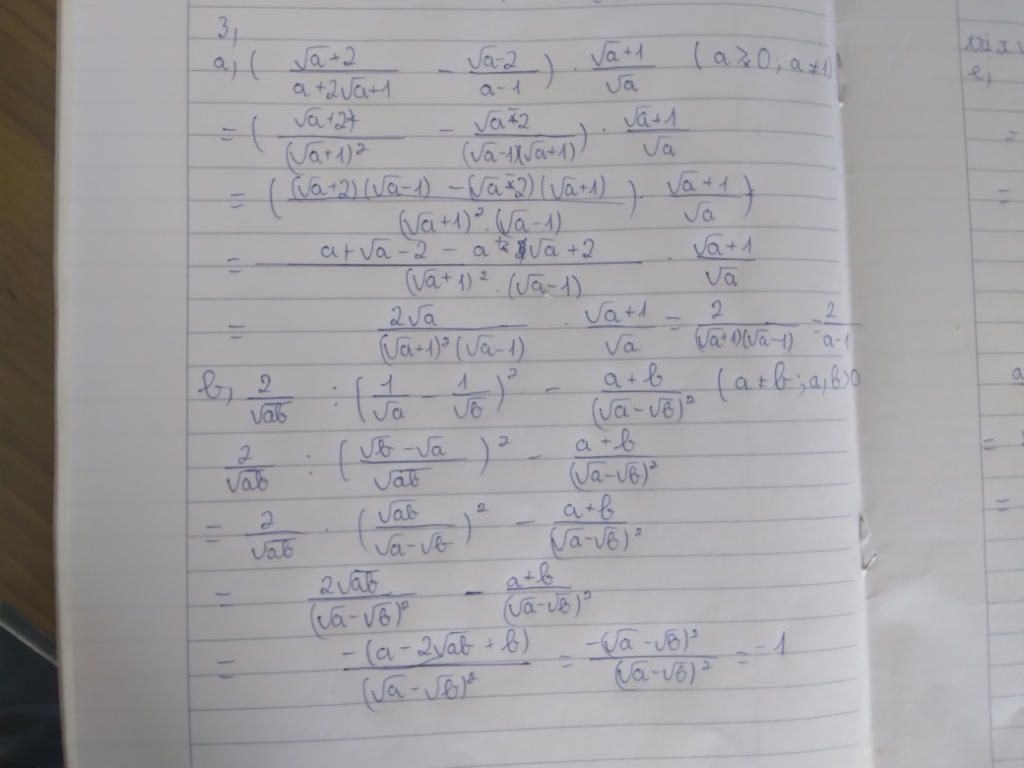 3,
a, ( (√a+2)/(a+2√a+1) - (√a-2)/(a-1) ) . (√a+1)/√a ( a > 0 ; a ≠ 1)
= ( (√a+2)/(√a+1)² - (√a-2)/((√a-1)(√a+1)) ) . (√a+1)/√a
= ( ((√a+2)(√a-1) - (√a-2)(√a+1))/((√a+1)² . (√a-1)) ) . (√a+1)/√a )
= (a+√a-2 - a + √a + 2)/((√a+1)² . (√a-1)) . (√a+1)/√a
= 2√a/((√a+1)² (√a-1)) . (√a+1)/√a = 2/((√a+1)(√a-1)) = 2/(a-1)
b, 2/√ab : ( 1/√a - 1/√b )² - (a+b)/(√a-√b)² ( a ≠ b ; a,b>0
2/√ab : ( (√b-√a)/√ab )² - (a+b)/(√a-√b)²
= 2/√ab . ( √ab/(√a-√b) )² - (a+b)/(√a-√b)²
= 2√ab/(√a-√b)² - (a+b)/(√a-√b)²
= -(a-2√ab+b)/(√a-√b)² = -(√a-√b)²/(√a-√b)² = -1